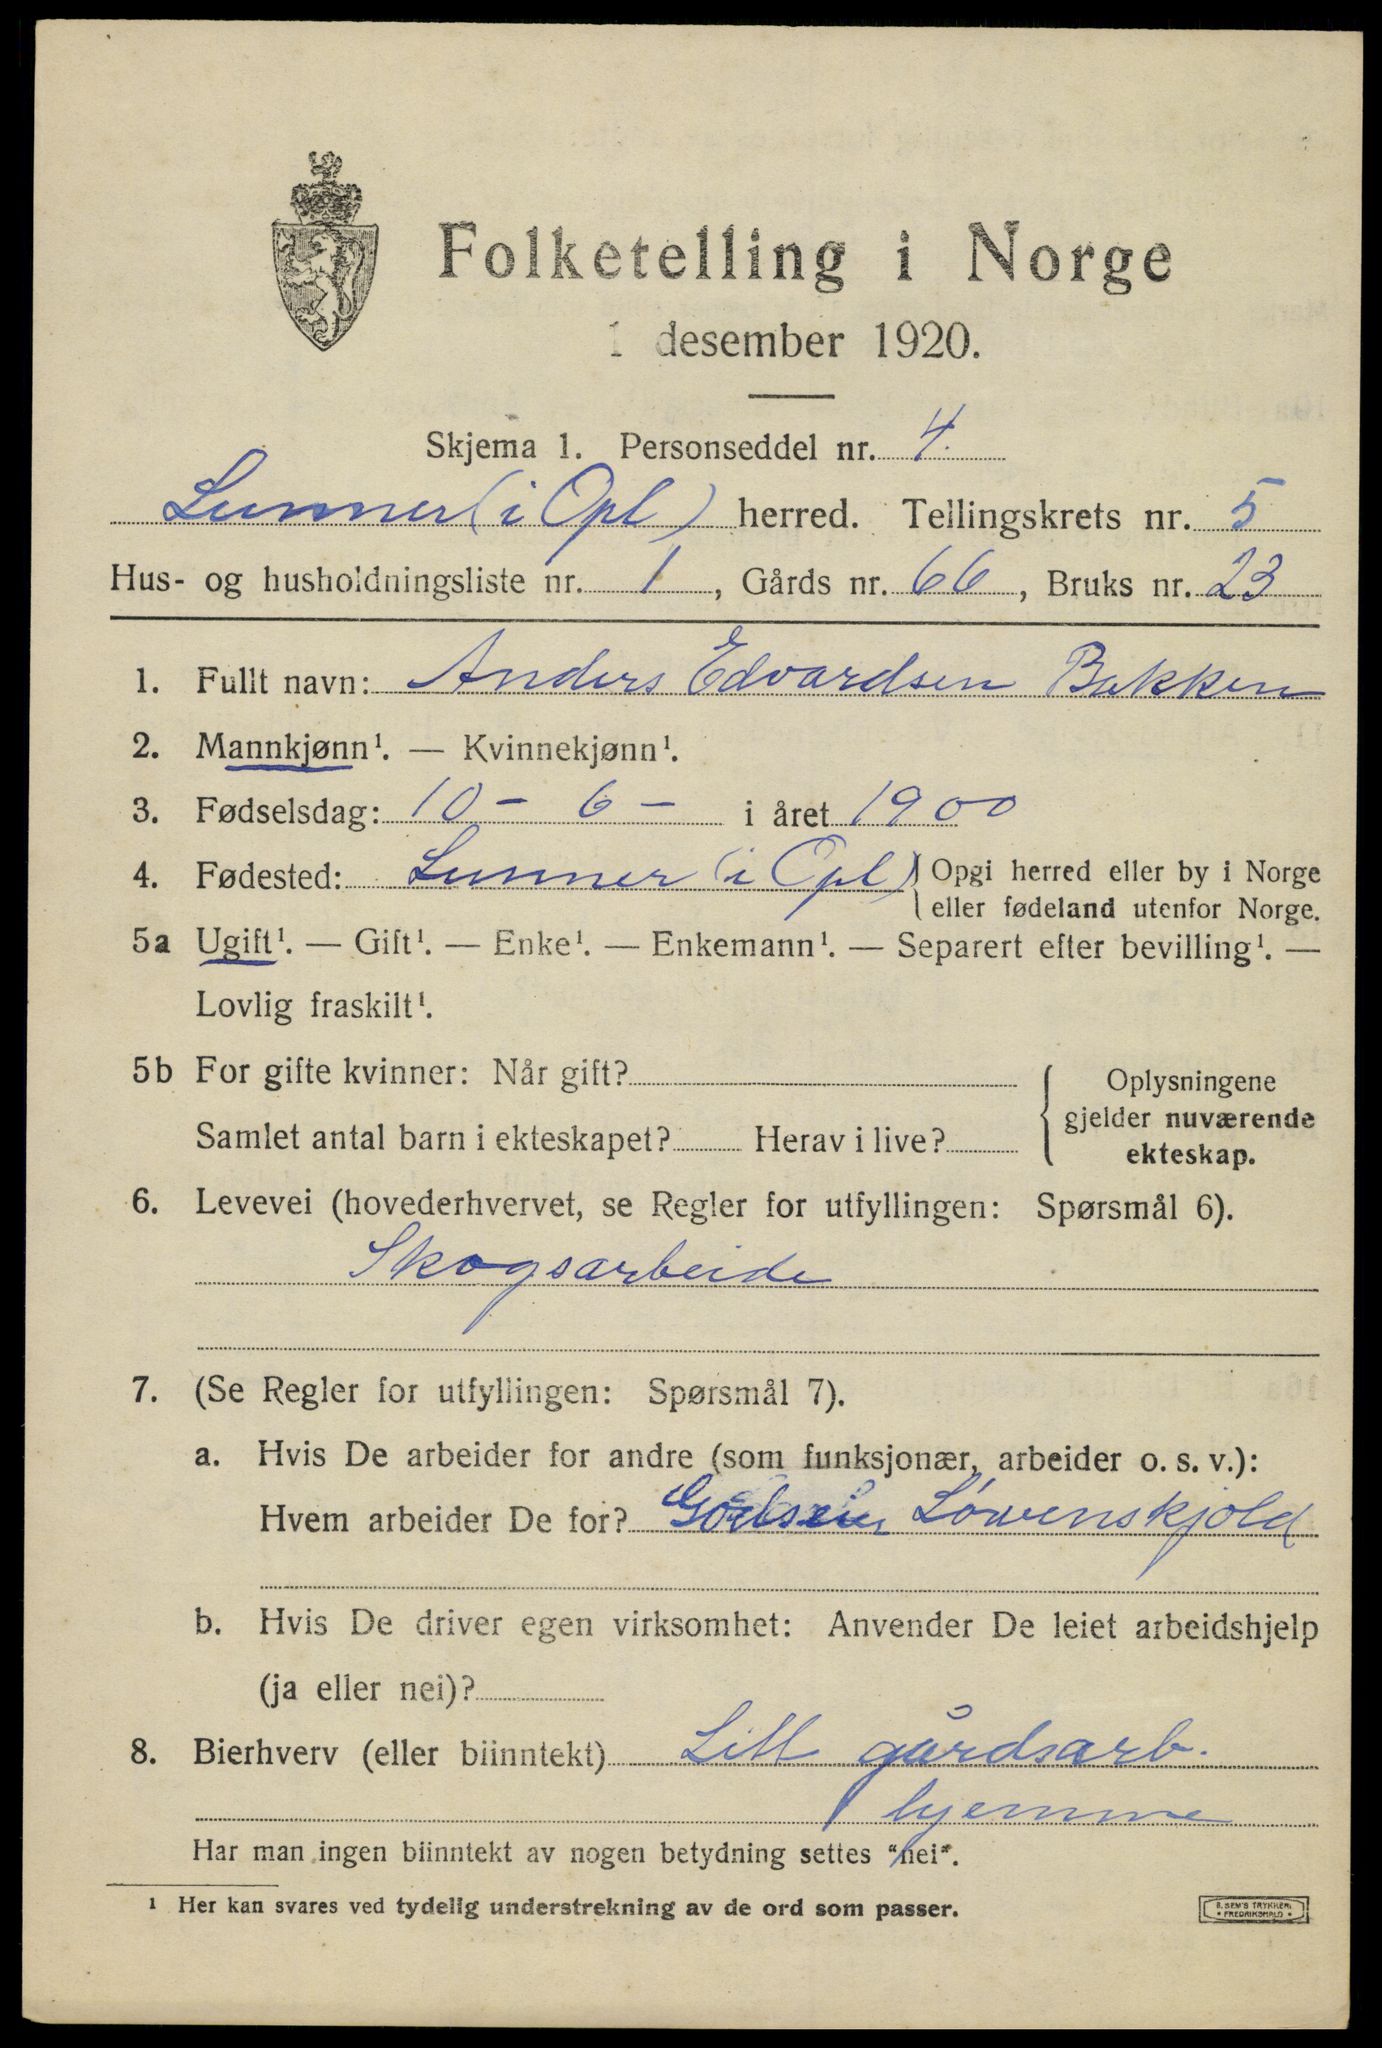 Folketelling i Norge
1 desember 1920.
Skjema 1. Personseddel nr. 4.
Lunner (i Opl) herred. Tellingskrets nr. 5
Hus- og husholdningsliste nr. 1, Gårds nr. 66, Bruks nr. 23
1. Fullt navn: Anders Edvardsen Bakken
2. Mannkjønn¹. — Kvinnekjønn¹.
3. Fødselsdag: 10 - 6 - i året 1900
4. Fødested: Lunner (i Opl) Opgi herred eller by i Norge
eller fødeland utenfor Norge.
5a Ugift¹. — Gift¹. — Enke¹. — Enkemann¹. — Separert efter bevilling¹. —
Lovlig fraskilt¹.
5b For gifte kvinner: Når gift?
Samlet antal barn i ekteskapet? Herav i live?
Oplysningene
gjelder nuværende
ekteskap.
6. Levevei (hovederhvervet, se Regler for utfyllingen: Spørsmål 6).
Skogsarbeide
7. (Se Regler for utfyllingen: Spørsmål 7).
a. Hvis De arbeider for andre (som funksjonær, arbeider o. s. v.):
Hvem arbeider De for? Løwenskjold
b. Hvis De driver egen virksomhet: Anvender De leiet arbeidshjelp
(ja eller nei)?
8. Bierhverv (eller biinntekt) Litt gårdsarb.
hjemme
Har man ingen biinntekt av nogen betydning settes "nei".
¹ Her kan svares ved tydelig understrekning av de ord som passer.
E. SEM'S TRYKKERI
• FREDRIKSHALD •